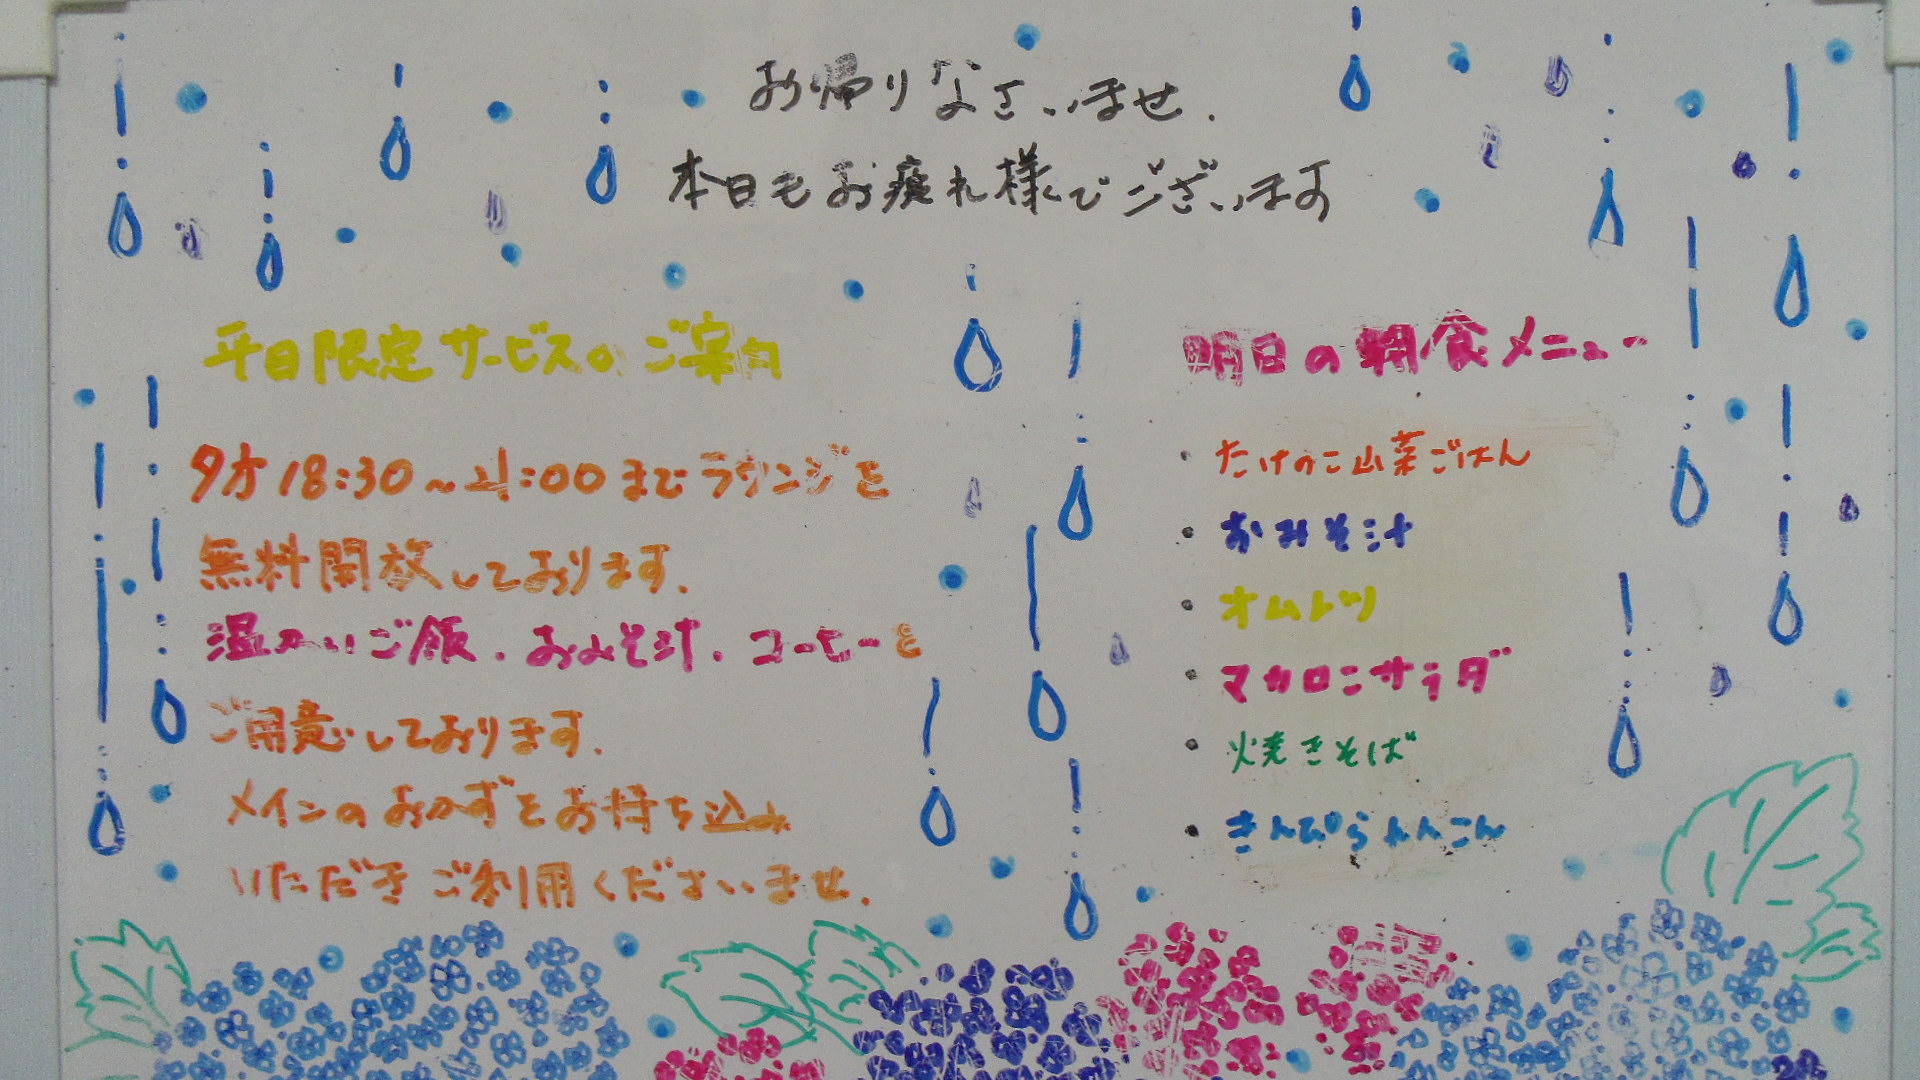 お帰りなさいませ.
本日もお疲れ様でございます
平日限定サービスのご案内
夕方18:30~21:00までラウンジを
無料開放しております.
温かいご飯.おみそ汁.コーヒーを
ご用意しております.
メインのおかずをお持ち込み
いただきご利用くださいませ.
明日の朝食メニュー
・たけのこ山菜ごはん
・おみそ汁
・オムレツ
・マカロニサラダ
・焼きそば
・きんぴられんこん